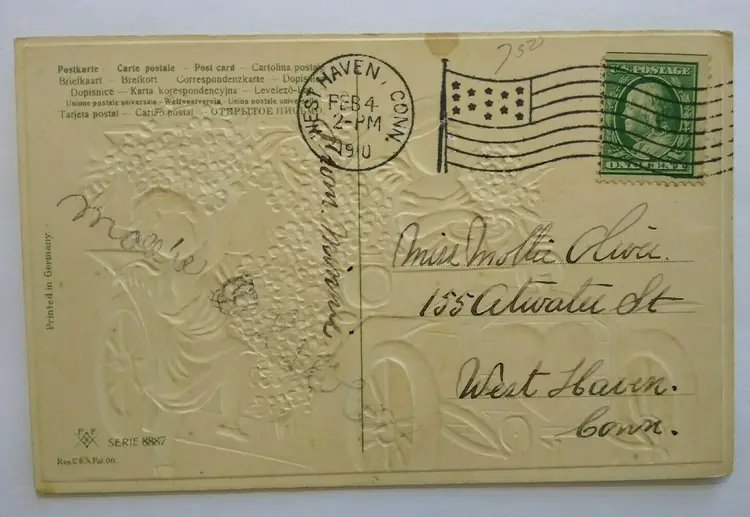 Postkarte Carte postale - Post card - Cartolina postale
Briefkaart - Brefkort Correspondenzkarte - Dopisnice
Dopisnice - Karta korespondencyjna - Levelező-L
Unione postale universale - Weltpostverein - Union postale univers
Tarjeta postal - Cartão postal ОТКРЫТОЕ ПИСЬ
WEST HAVEN, CONN.
FEB 4
2-PM
1910
750
U.S. POSTAGE
ONE CENT
from Minnie.
Miss Mollie Oliver.
155 Atwater St
West Haven.
Conn.
Mollie
Printed in Germany
P F
SERIE 8887
Reg. U.S.A. Pat. Off.